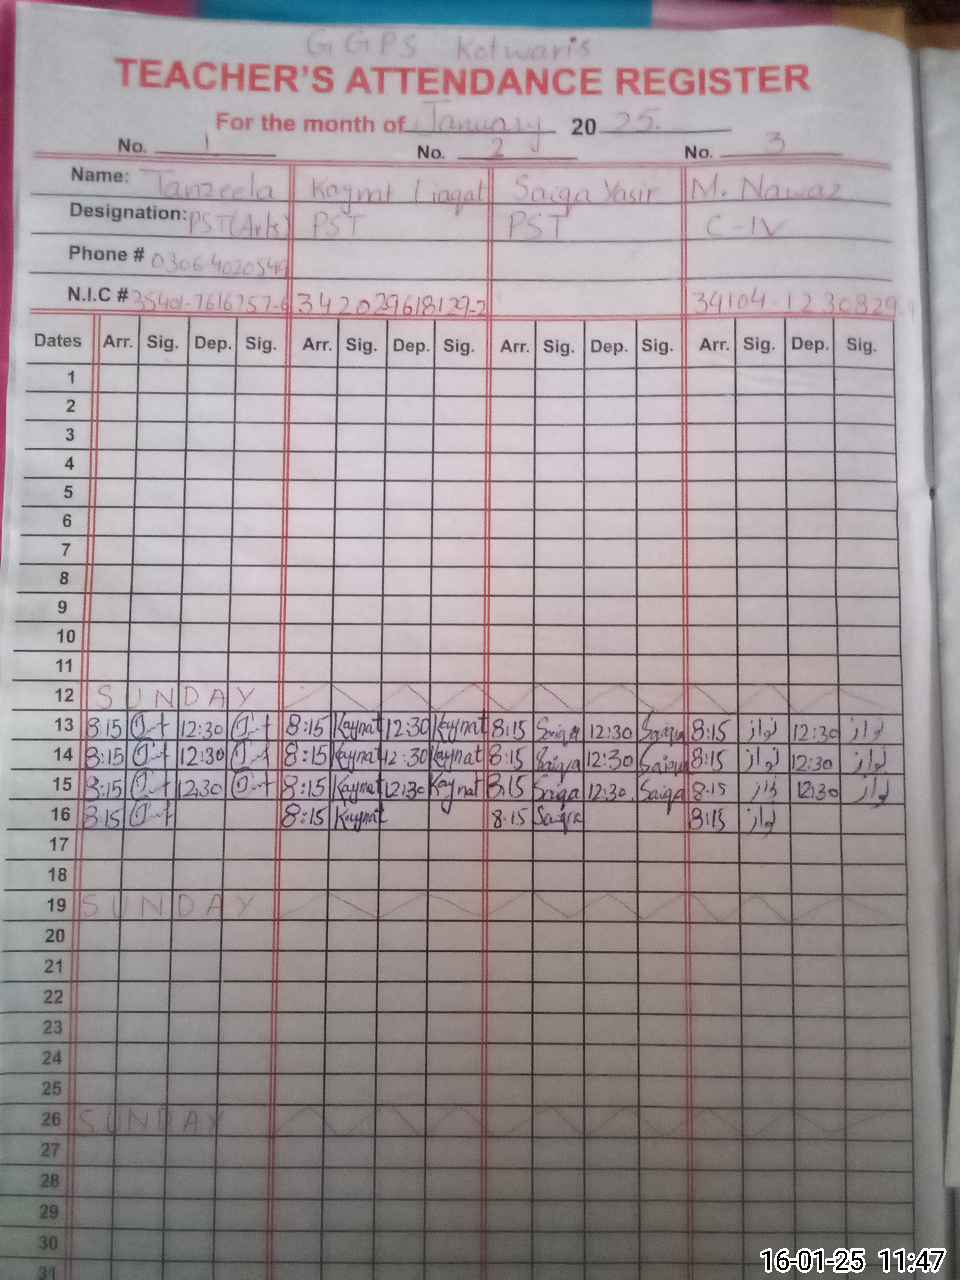 GGPS Kotwaris
TEACHER'S ATTENDANCE REGISTER
For the month of January 2025
No. 1 No. 2 No. 3
Name: Tanzeela Kaynat Liaqat Saiqa Yasir M. Nawaz
Designation: PST(Arts) PST PST C-IV
Phone #
N.I.C #
Dates Arr. Sig. Dep. Sig. Arr. Sig. Dep. Sig. Arr. Sig. Dep. Sig. Arr. Sig. Dep. Sig.
1
2
3
4
5
6
7
8
9
10
11
12 SUNDAY
13 8:15 12:30 8:15 Kaynat 12:30 Kaynat 8:15 Saiqa 12:30 Saiqa 8:15 نواز 12:30 نواز
14 8:15 12:30 8:15 Kaynat 12:30 Kaynat 8:15 Saiqa 12:30 Saiqa 8:15 نواز 12:30 نواز
15 8:15 12:30 8:15 Kaynat 12:30 Kaynat 8:15 Saiqa 12:30 Saiqa 8:15 نواز 12:30 نواز
16 8:15 8:15 Kaynat 8:15 Saiqa 8:15 نواز
17
18
19 SUNDAY
20
21
22
23
24
25
26 SUNDAY
27
28
29
30
31
16-01-25 11:47